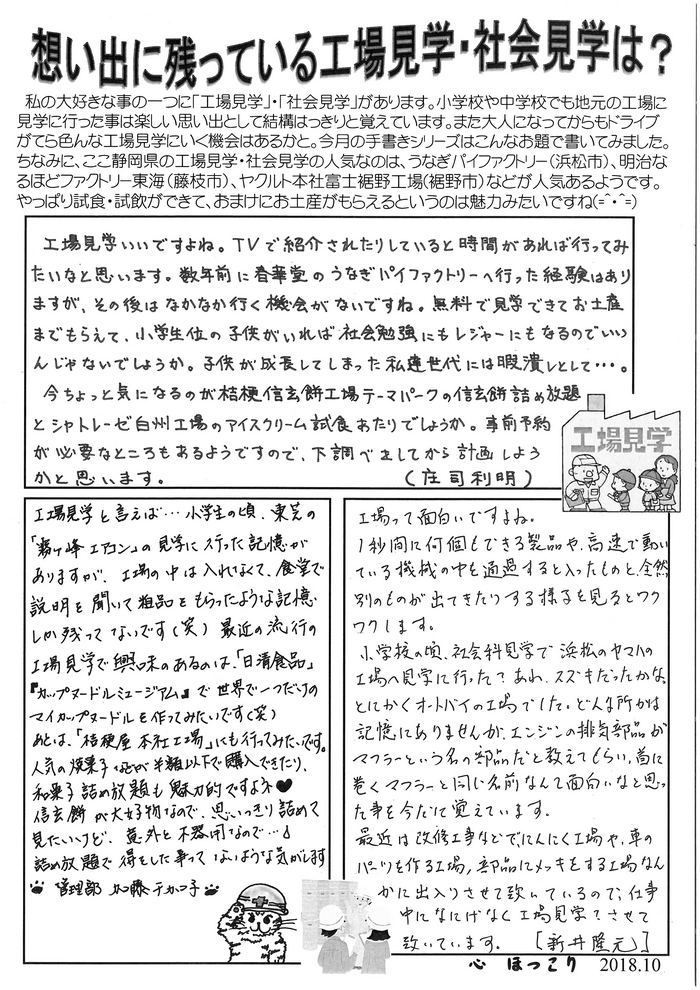 想い出に残っている工場見学・社会見学は？
私の大好きな事の一つに「工場見学」・「社会見学」があります。小学校や中学校でも地元の工場に
見学に行った事は楽しい思い出として結構はっきりと覚えています。また大人になってからもドライブ
がてら色んな工場見学にいく機会はあるかと。今月の手書きシリーズはこんなお題で書いてみました。
ちなみに、ここ静岡県の工場見学・社会見学の人気なのは、うなぎパイファクトリー（浜松市）、明治な
るほどファクトリー東海（藤枝市）、ヤクルト本社富士裾野工場（裾野市）などが人気あるようです。
やっぱり試食・試飲ができて、おまけにお土産がもらえるというのは魅力みたいですね(=^・^=)
工場見学いいですよね。TVで紹介されたりしていると時間があれば行ってみ
たいなと思います。数年前に春華堂のうなぎパイファクトリーへ行った経験はあり
ますが、その後はなかなか行く機会がないですね。無料で見学できてお土産
までもらえて、小学生位の子供がいれば社会勉強にもレジャーにもなるのでいい
んじゃないでしょうか。子供が成長してしまった私達世代には暇潰しとして・・・。
今ちょっと気になるのが桔梗信玄餅工場テーマパークの信玄餅詰め放題
とシャトレーゼ白州工場のアイスクリーム試食あたりでしょうか。事前予約
が必要なところもあるようですので、下調べをしてから計画しよう
かと思います。（庄司利明）
工場見学
工場見学と言えば…小学生の頃、東芝の
「霧ヶ峰エアコン」の見学に行った記憶が
ありますが、工場の中は入れなくて、食堂で
説明を聞いて粗品をもらったような記憶
しか残ってないです（笑）最近の流行の
工場見学で興味のあるのは、「日清食品」
『カップヌードルミュージアム』で世界で一つだけの
マイカップヌードルを作ってみたいです（笑）
あとは、「桔梗屋本社工場」にも行ってみたいです。
人気の焼菓子 が半額以下で購入できたり、
和菓子詰め放題も魅力的ですよネ♥
信玄餅が大好物なので、思いっきり詰めて
見たいけど、意外と不器用なので…♪
詰め放題で得をした事ってないような気がします
管理部 加藤チカ子
工場って面白いですよね。
1秒間に何個もできる製品や、高速で動い
ている機械の中を通過すると入ったものと、全然
別のものが出てきたりする様子を見るとワク
ワクします。
小学校の頃、社会科見学で浜松のヤマハの
工場へ見学に行った？あれ、スズキだったかな。
とにかくオートバイの工場でした。どんな所かは
記憶にありませんが、エンジンの排気部品が
マフラーという名の部品だと教えてもらい、首に
巻くマフラーと同じ名前なんて面白いなと思っ
た事を今だに覚えています。
最近は改修工事などでにんにく工場や、車の
パーツを作る工場、部品にメッキをする工場なん
かに出入りさせて頂いているので、仕事
中になにげなく工場見学をさせて
頂いています。［新井隆元］
心 ほっこり 2018.10